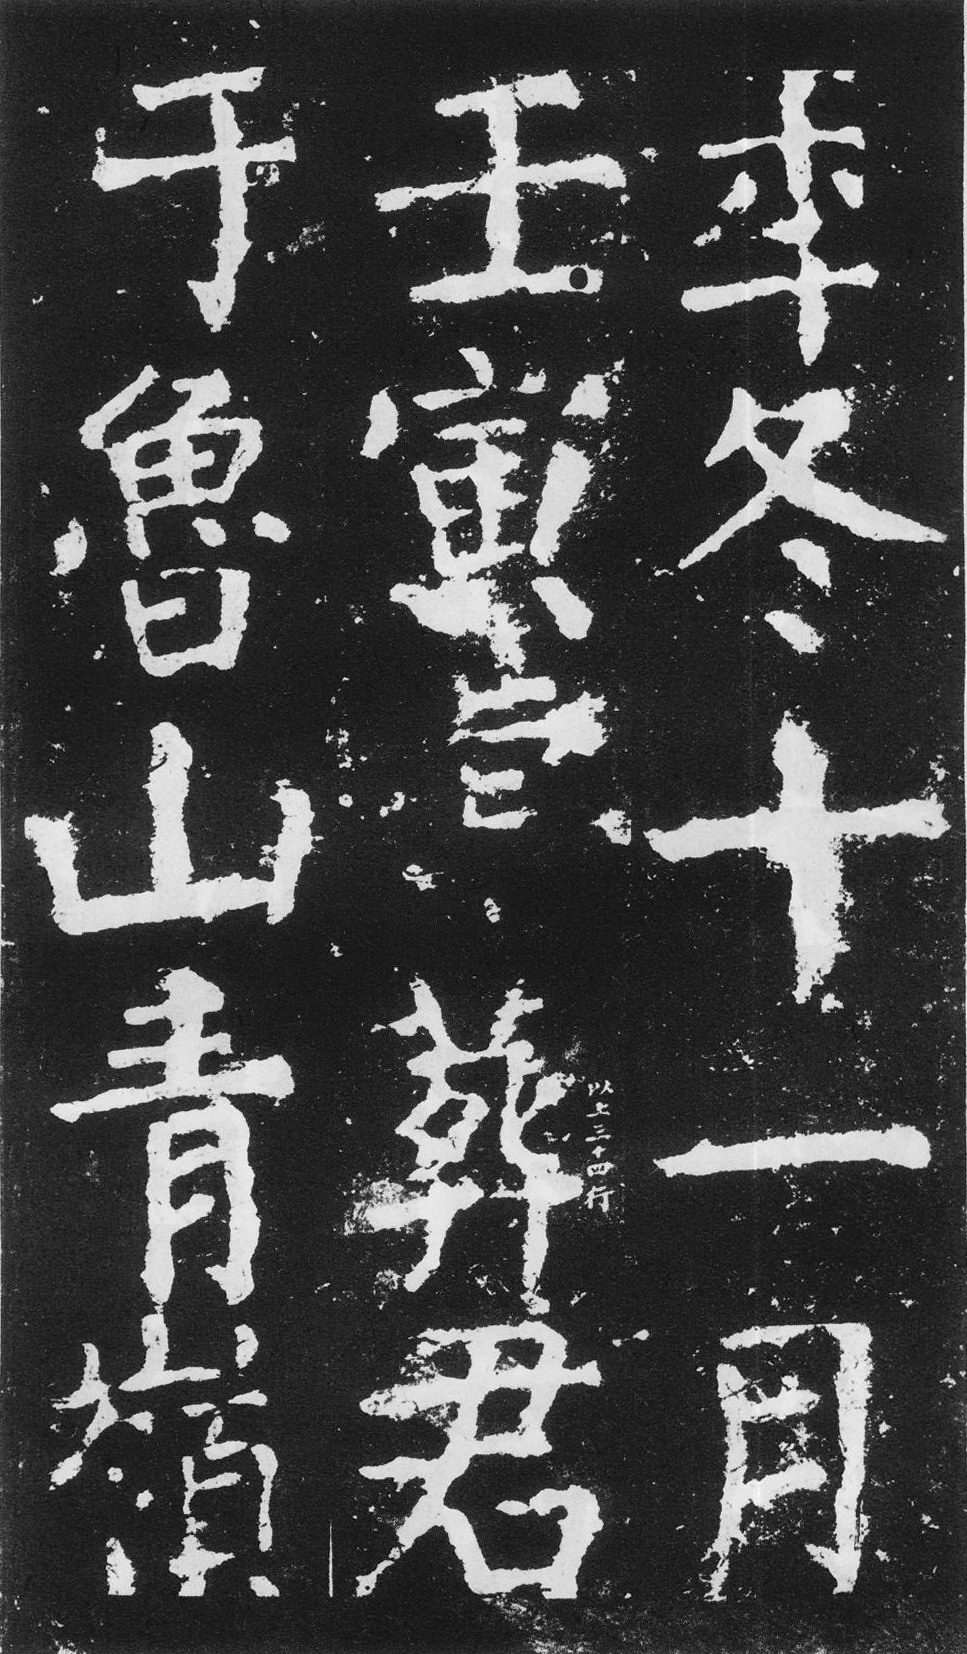 秊冬十一月
壬寅葬君
以上三十四行
于魯山青嶺